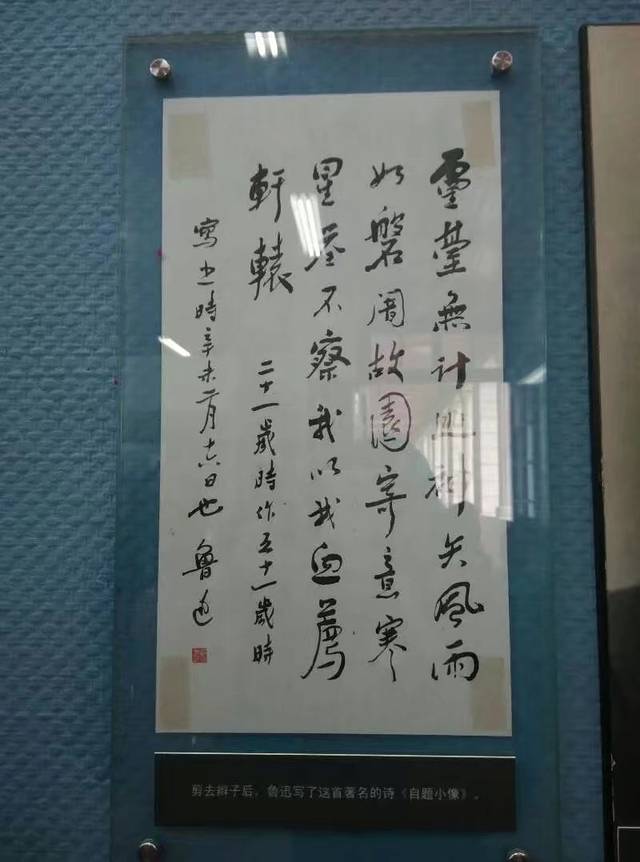 靈臺無計逃神矢風雨
如磐闇故園寄意寒
星荃不察我以我血薦
軒轅
二十一歲時作五十一歲時
寫之時辛未二月十六日也 魯迅
剪去辫子后,鲁迅写了这首著名的诗《自题小像》。